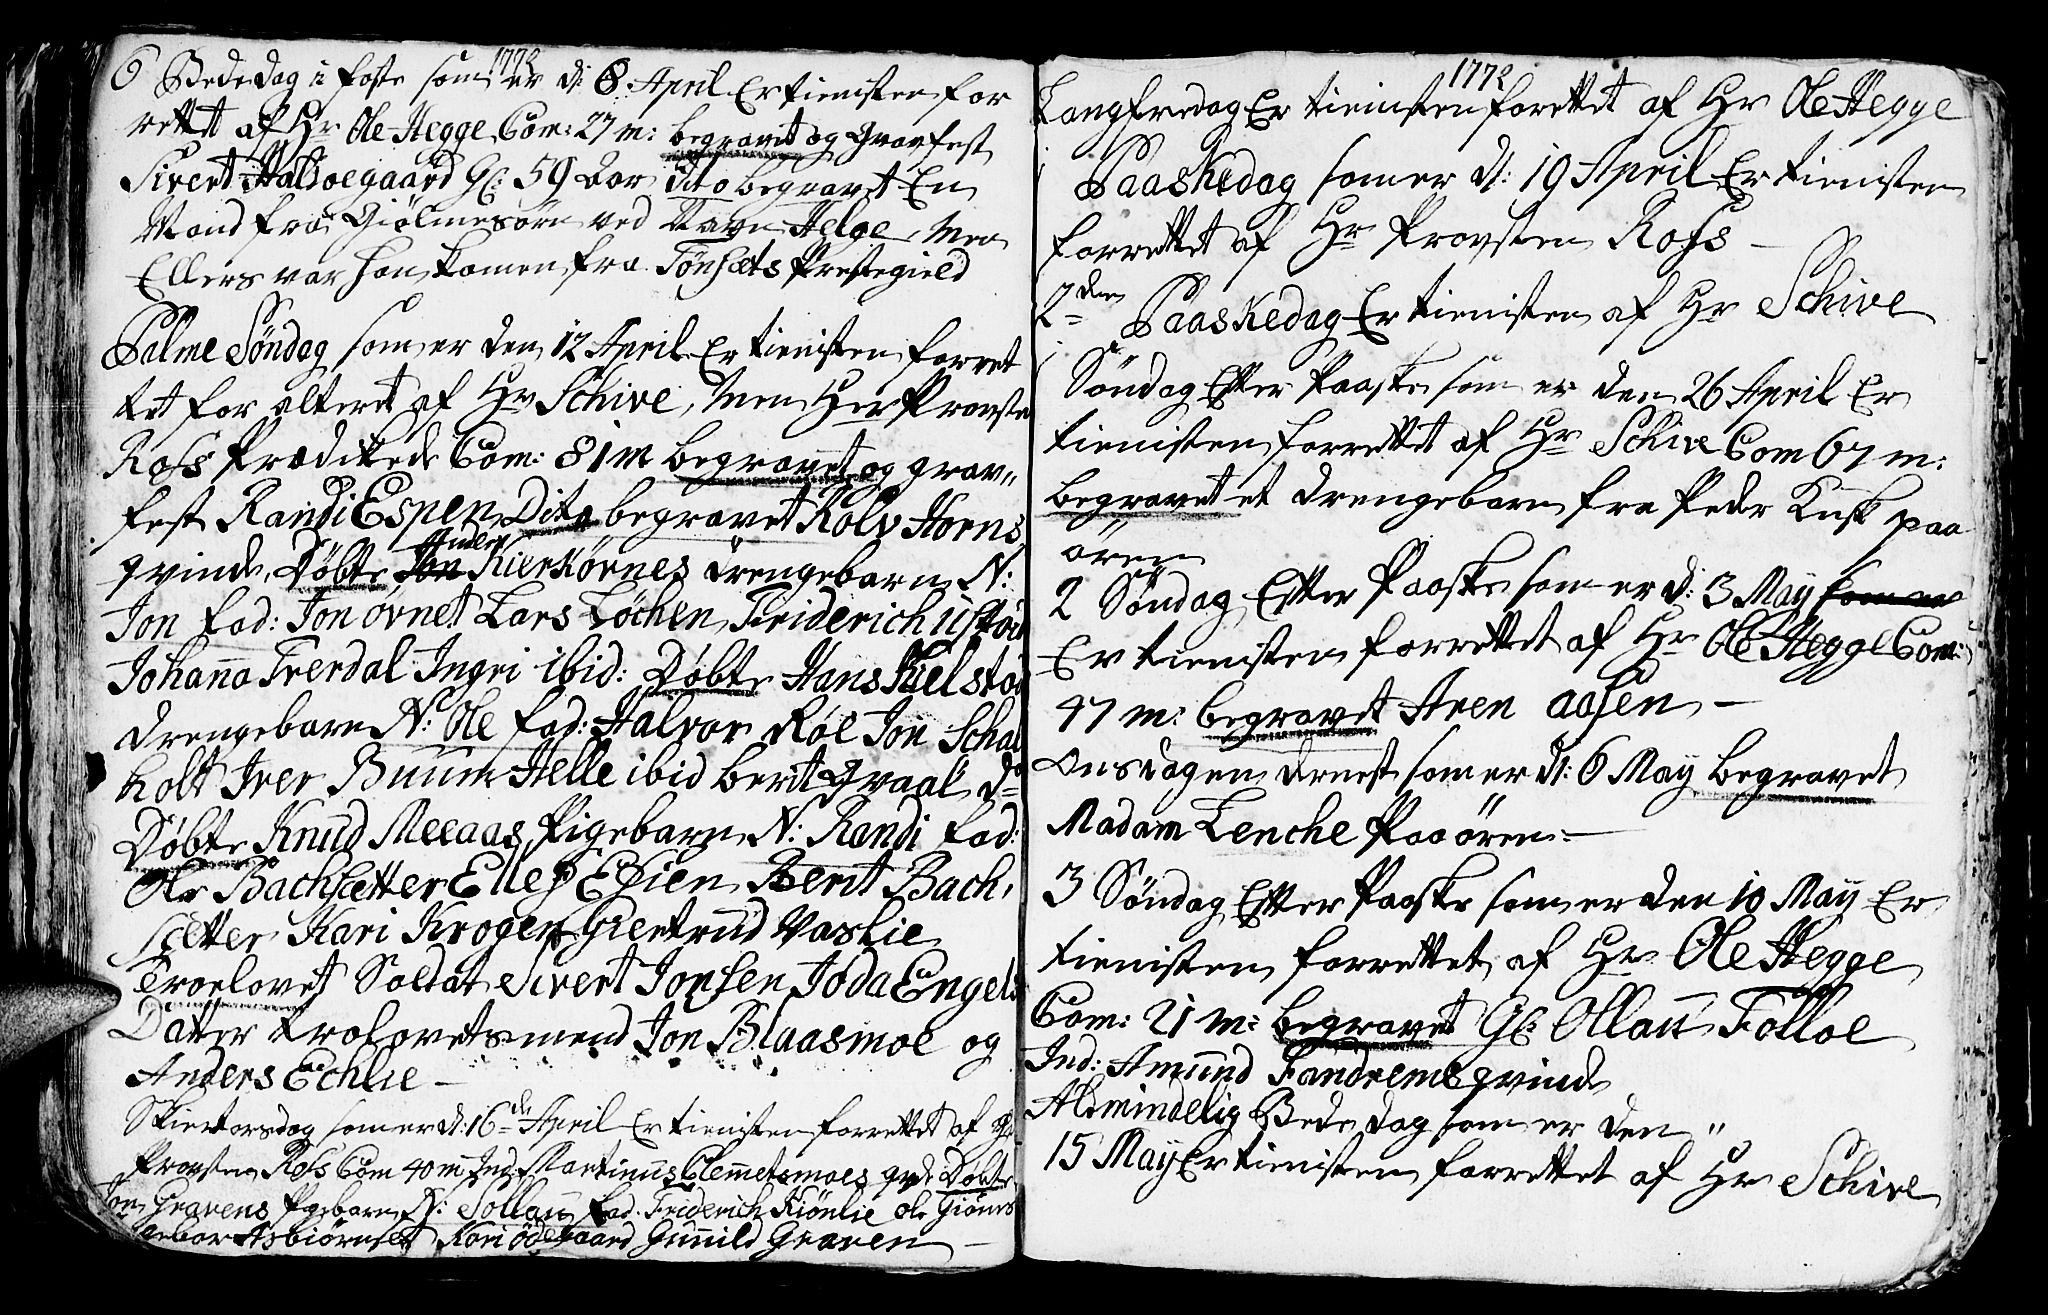 1772
6 Bededag i faste som er d: 8 April Er tienisten for
rettet af Hr Ole Hegge Com: 27 m: begravet og gravfest
Sivert Halsoegaard Gl: 59 aar dito begravet En
Mand fra Giølmesørn ved Navn Helge, Men
Ellers var han kommen fra Tønsæts Prestegield
Palme Søndag som er den 12 April Er tienisten forret
tet for alteret af Hr Schive, Men Her Provsten
Rofs Prædikede Com: 81 m begravet og grav„
fest Randi Espen Dito begravet Rolv Horns
qvinde, Døbte Jon Anders Kierkørnes drengebarn N:
Jon fad: Jon øvnet Lars Løchen Friderich ustød
Johanna Frerdal Ingri ibid: Døbte Hans Kuelstød
drengebarn N: Ole fad: Halvor Røe Jon Schal
holt Iver Buum Helle ibid Berit Qvaal d=
Døbte Knud Meeaas Pigebarn N: Randi fad:
Ole Bachsætter Ellef Efien Berit Bach,
sætter Kari Krogen Giertrud Vaslie
Troelovet Soldat Sivert Jonsen Joda Engels
Dater Trolovetsmend Jon Blaasmoe og
Anders Echlie —
Skiertorsdag som er d: 16de April Er tienisten forrettet af Hr
Provsten Rofs Com 40 m Ind: Martinus Clemetsmoes qvd: Døbte
Jon Gravens Pigebarn N: Sollau fad. Friderich Kiønlie Ole Giønnes
Asbiørnslet Kari ødegaard Gunnild Graven —
1772
Langfredag Er tienisten forettet af Hr Ole Hegge
1 Paaskedag som er d: 19 April Er tienisten
forrettet af Hr Provsten Rofs —
2den Paaskedag Er tienisten af Hr Schive
1 Søndag Efter Paaske som er den 26 April Er
tienisten forrettet af Hr Schive Com 67 m:
begravet et drengebarn fra Peder Kusk paa
ören
2 Søndag Efter Paaske som er d: 3 May som er
Er tienisten forrettet af Hr Ole Hegge Com:
47 m: begravet Aren aasen —
Onsdagen dernest som er d: 6 May begravet
Madam Lenche Paa ören —
3 Søndag Efter Paaske som er den 10 May Er
tienisten forrettet af Hr Ole Hegge
Com: 21 m: begravet Gl: Ollau Folloe
Ind: Amund Fandrems qvinde
Almindelig Bededag som er den „
15 May Er tienisten forrettet af Hr Schive